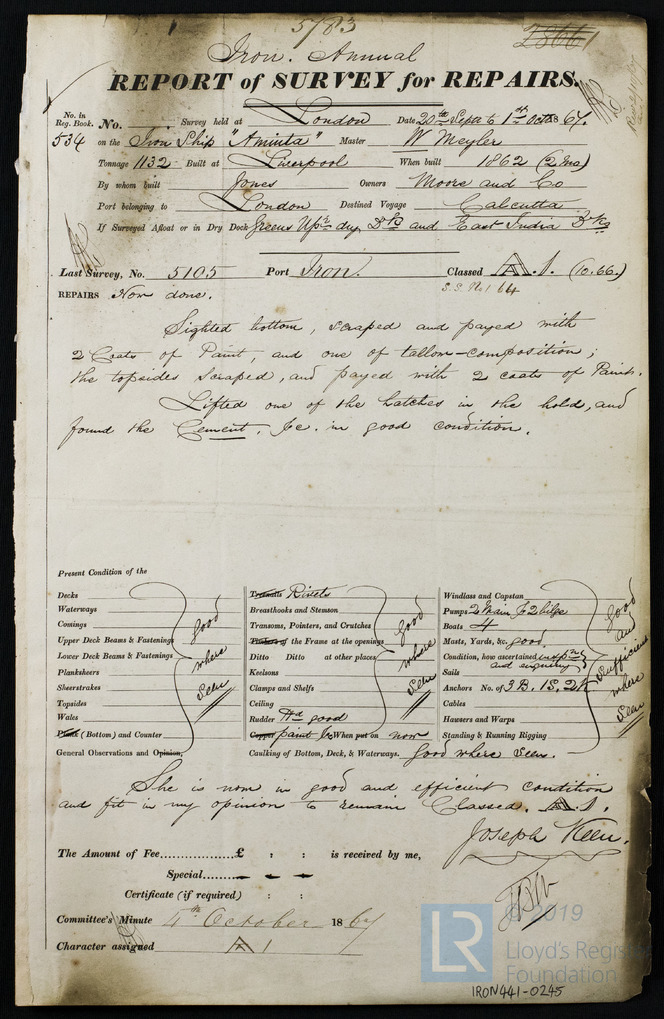 5183
Iron. Annual
REPORT of SURVEY for REPAIRS.
No. in Reg. Book. No. Survey held at London Date 20th Septr to 1st Octr 1867.
534 on the Iron Ship "Aminta" Master W Meyler
Tonnage 1132 Built at Liverpool When built 1862 (2 mo)
By whom built Jones Owners Moore and Co
Port belonging to London Destined Voyage Calcutta
If Surveyed Afloat or in Dry Dock Greens Upr dry Dk and East India Dks
Last Survey, No. 5105 Port Iron. Classed A.1. (10.66.)
S.S. No 1 64
REPAIRS Now done.
Sighted bottom, scraped and payed with
2 Coats of Paint, and one of tallow-composition;
the topsides scraped, and payed with 2 coats of Paint.
Lifted one of the hatches in the hold, and
found the Cement, &c. in good condition.
Present Condition of the
Decks
Waterways
Comings
Upper Deck Beams & Fastenings
Lower Deck Beams & Fastenings
Planksheers
Sheerstrakes
Topsides
Wales
Plank (Bottom) and Counter
good where seen
General Observations and Opinion,
Treenails Rivets
Breasthooks and Stemson
Transoms, Pointers, and Crutches
Timbers of the Frame at the openings
Ditto Ditto at other places
Keelsons
Clamps and Shelfs
Ceiling
good where seen
Rudder good
Copper paint &c When put on now
Caulking of Bottom, Deck, & Waterways. Good where seen.
Windlass and Capstan
Pumps 2 Main & 2 bilge
Boats 4
Masts, Yards, &c. good.
Condition, how ascertained
and enquiry
Sails
Anchors No. of 3 B. 1 S. 2 K
Cables
Hawsers and Warps
Standing & Running Rigging
good and sufficient where seen
She is now in good and efficient condition
and fit in my opinion to remain Classed. A.1.
Joseph Keen.
The Amount of Fee............... £ : : is received by me,
Special......
Certificate (if required) : :
Committee's Minute 4th October 1867
Character assigned A 1
© 2019
LR Lloyd's Register
Foundation
IRON441-0245